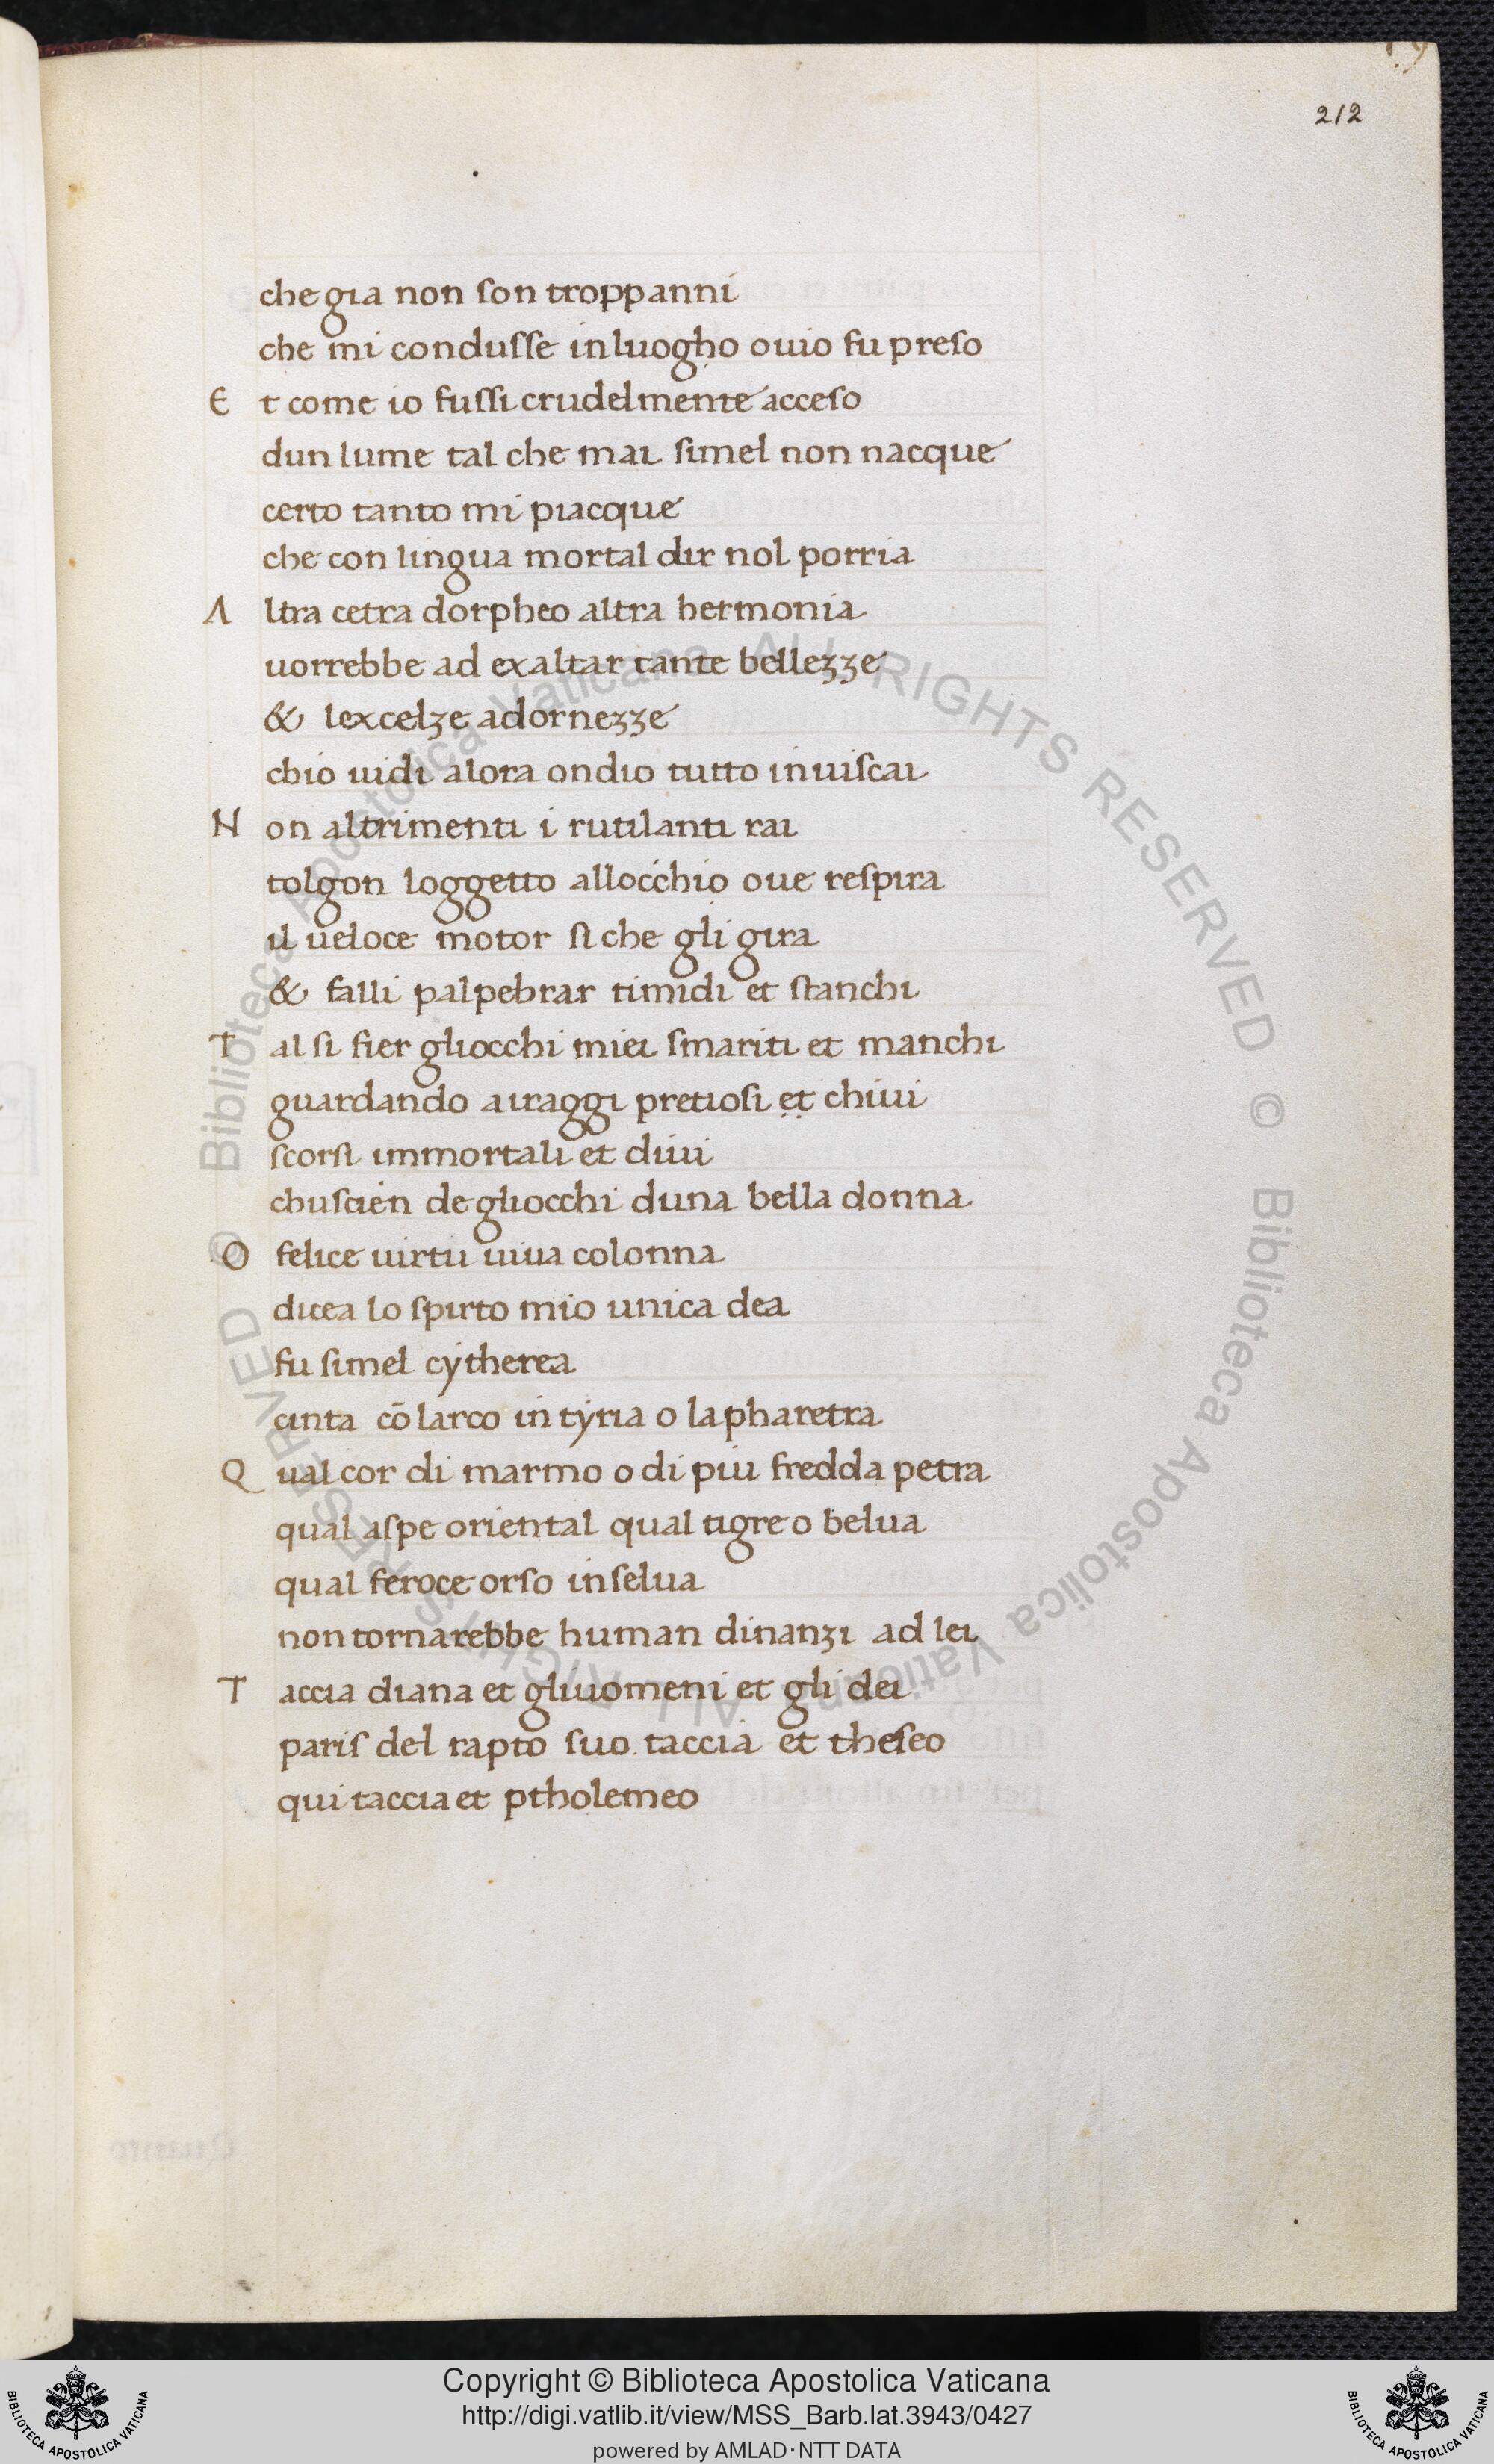 212
che gia non son troppanni
che mi condusse inluogho ouio fu preso
Et come io fussi crudelmente acceso
dun lume tal che mai simel non nacque
certo tanto mi piacque
che con lingua mortal dir nol porria
Altra cetra dorpheo altra hermonia
uorrebbe ad exaltar tante bellezze
& lexcelze adornezze
chio uidi alora ondio tutto inuiscai
Non altrimenti i rutilanti rai
tolgon loggetto allocchio oue respira
il ueloce motor si che gli gira
& falli palpebrar timidi et stanchi
Tal si fier gliocchi miei smariti et manchi
guardando airaggi pretiosi et chiui
scorsi immortali et diui
chuscien de gliocchi duna bella donna
O felice uirtu uiua colonna
dicea lo spirto mio unica dea
fu simel cytherea
cinta cō larco in tyria o la pharetra
Qual cor di marmo o di piu fredda petra
qual aspe oriental qual tigre o belua
qual feroce orso inselua
non tornarebbe human dinanzi ad lei
Taccia diana et gliuomeni et gli dei
paris del rapto suo taccia et theseo
qui taccia et ptholemeo
Copyright © Biblioteca Apostolica Vaticana
http://digi.vatlib.it/view/MSS_Barb.lat.3943/0427
powered by AMLAD·NTT DATA